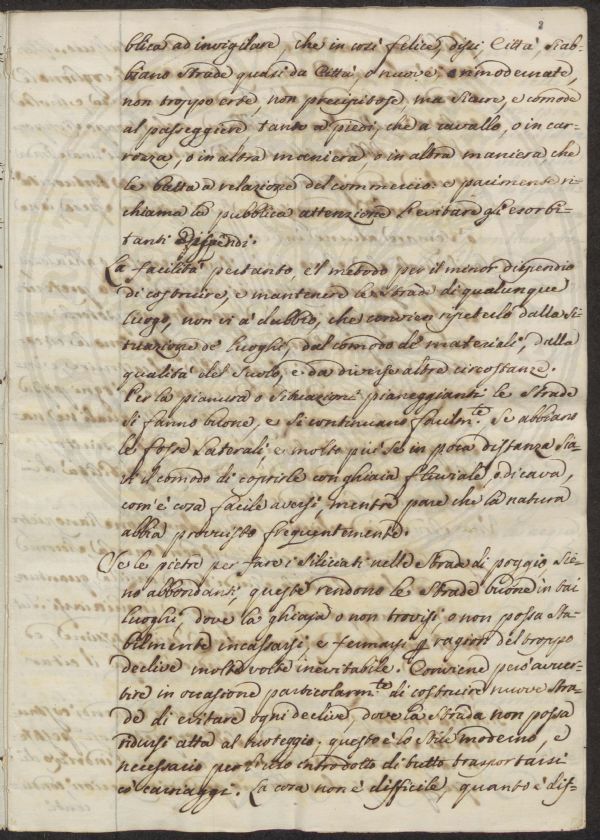 8
blica ad invigilare, che in così felice, dissi, Città, s'ab-
biano Strade quasi da Città, o nuove, o rimodernate,
non troppo erte, non precipitose, ma sicure, e comode
al passeggiere tanto a piedi, che a cavallo, o in car-
rozza, o in altra maniera, o in altra maniera che
le batta a relazione del commercio. e parimente ri-
chiama la pubblica attenzione l'evitare gli esorbi-
tanti dispendi.
La facilità pertanto, e'l metodo per il minor dispendio
di costruire, e mantenere le Strade di qualunque
luogo, non vi à dubbio, che convien ripeterlo dalla si-
tuazione de' luoghi, dal comodo de' materiali, dalla
qualità del Suolo, e da diverse altre circostanze.
Per la pianura o Situazioni pianeggianti le Strade
si fanno buone, e si continuano facilm.te Se abbiano
le fosse laterali, e molto più se in poca distanza sia-
vi il comodo di coprirle con ghiaia fluviale, o di cava,
com'è cosa facile aversi, mentre pare che la natura
abbia provvisto frequentemente.
Se le pietre per fare i Siliciati nelle Strade di poggio sie-
no abbondanti, queste rendono le Strade buone in tai
luoghi, dove la ghiaja o non trovisi, o non possa sta-
bilmente incassarsi, e fermarsi p ragion del troppo
declive molte volte inevitabile. Conviene però avver-
tire in occasione particolarm.te di costruire nuove Stra-
de di evitare ogni declive, dove la Strada non possa
ridursi atta al ruoteggio; questo è lo Stile moderno, e
necessario per l'uso introdotto di tutto trasportarsi
co' carriaggi. La cosa non è difficile, quanto è dif-